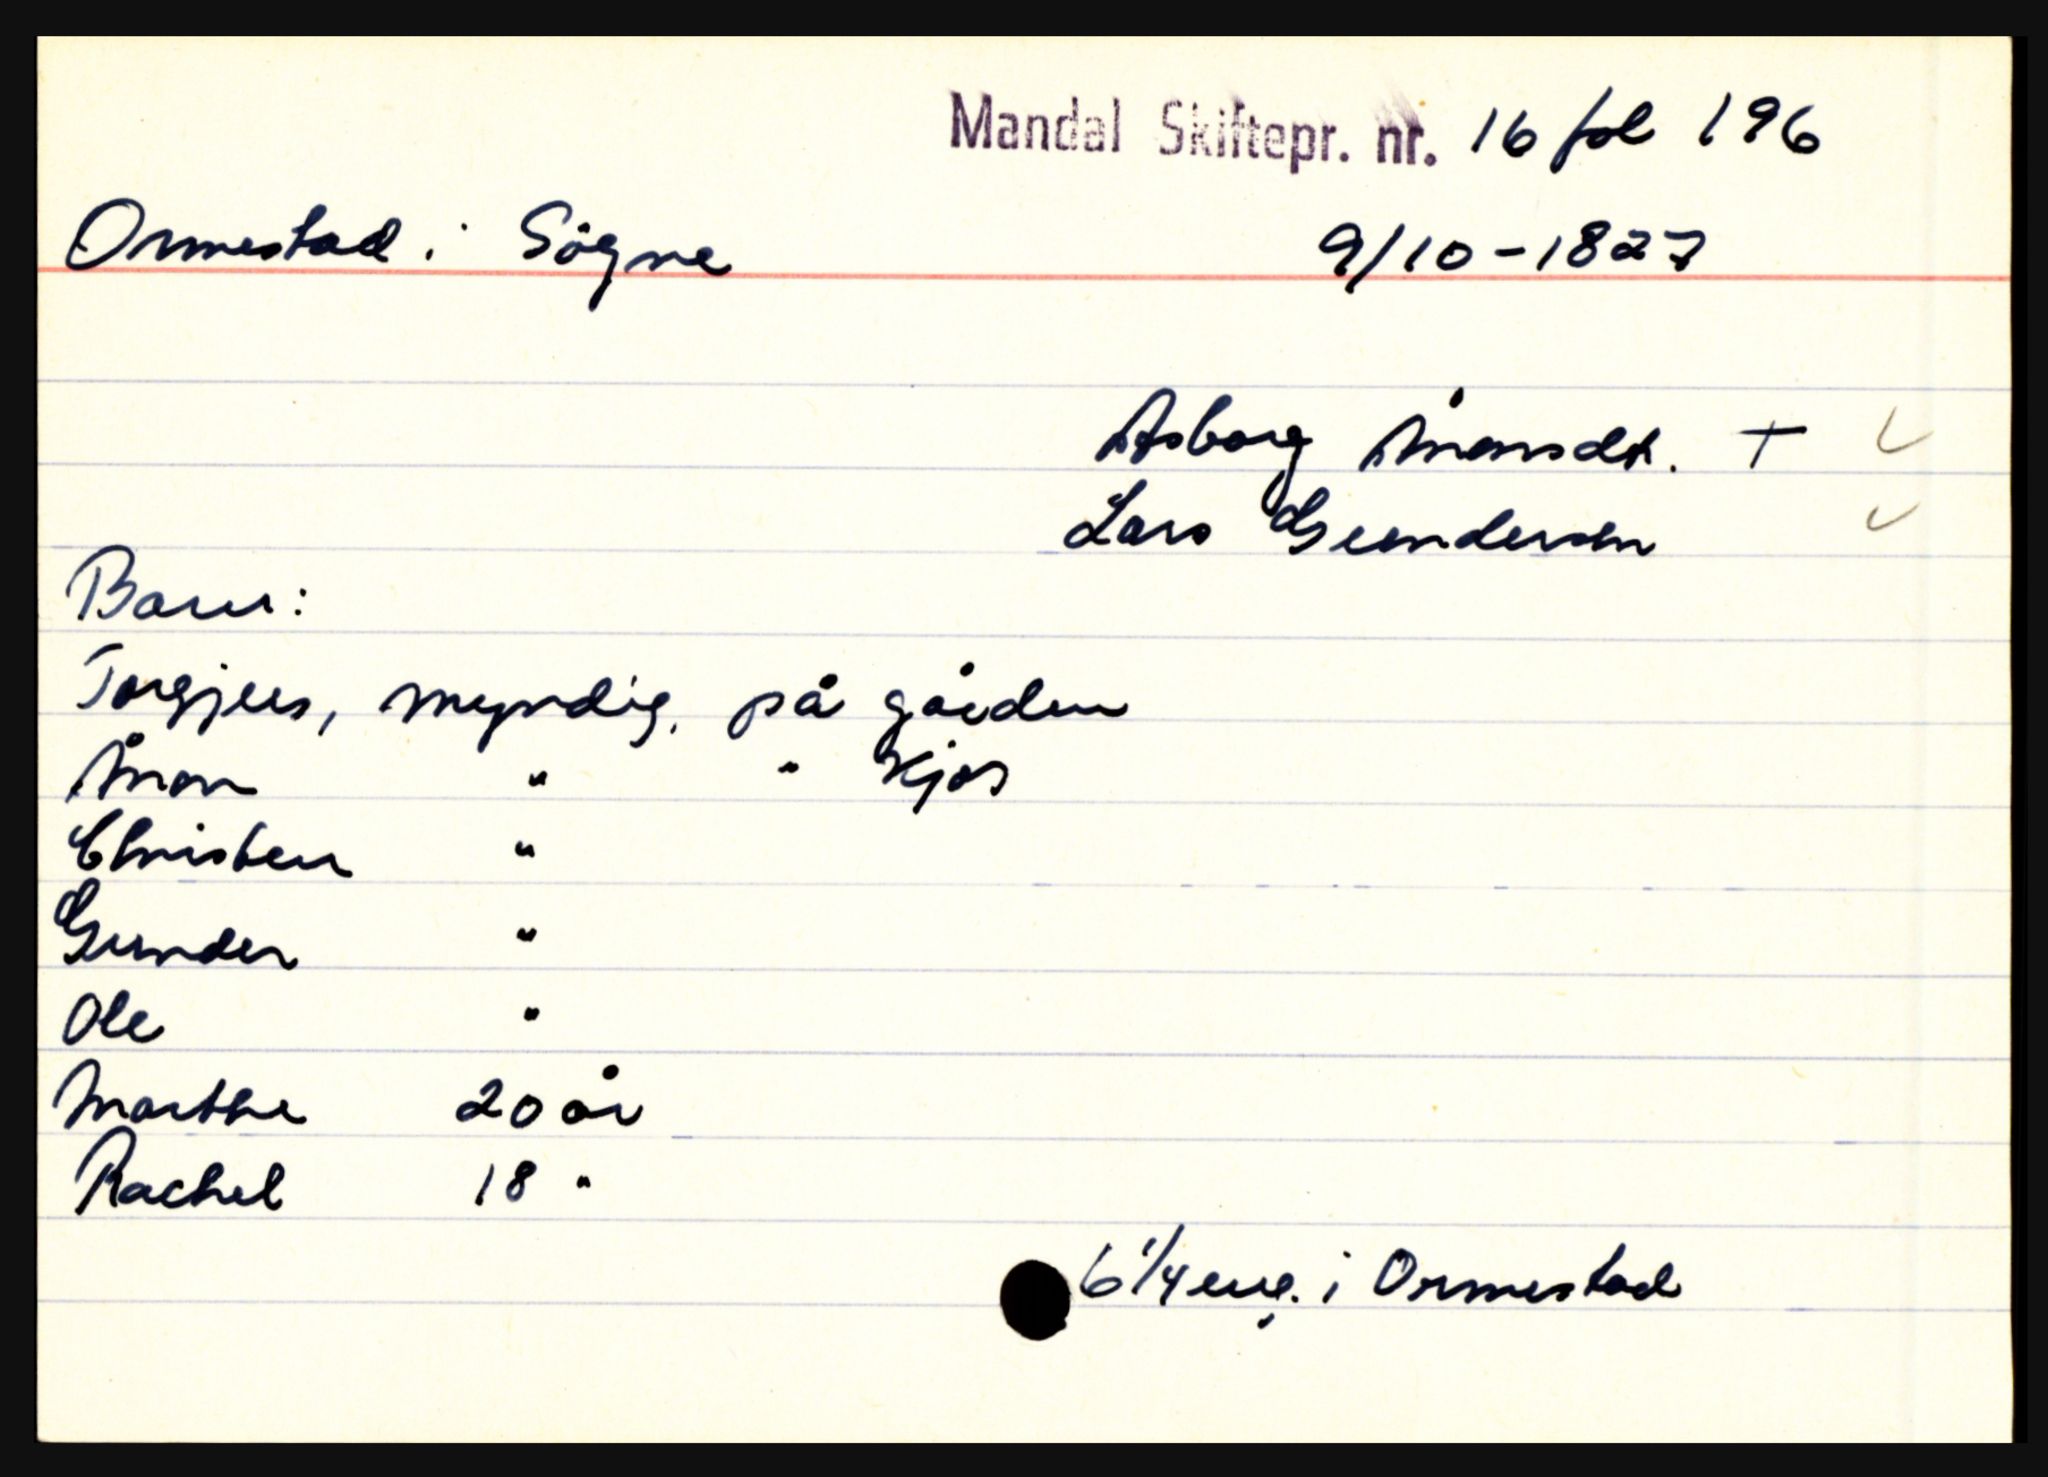 Mandal Skiftepr. nr. 16 fol 196
Ormestad i Sögne 9/10-1827
Asborg Ånonsdt. +
Lars Gundersen
Barn:
Torgjus, myndig, på gården
Ånon " " Kjos
Christen "
Gunder "
Ole "
Marthe 20 år
Rachel 18 "
6 1/4 eng. i Ormestad